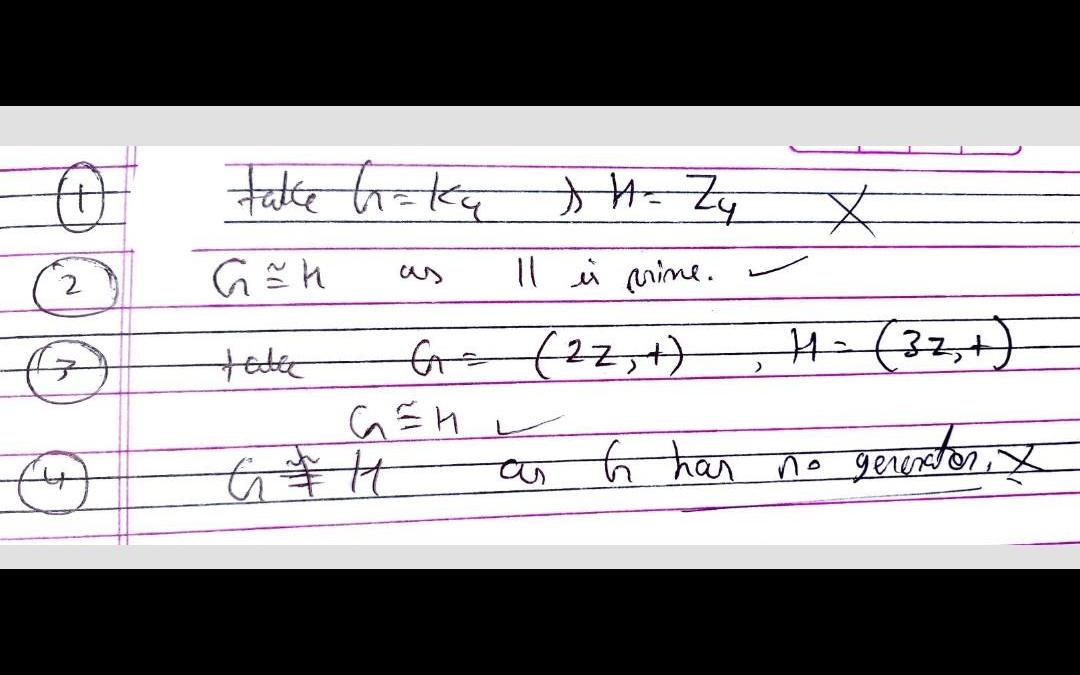 ① take G = K₄ , H = Z₄ ✗
② G ≅ H as 11 is prime. ✓
③ take G = (2Z, +) , H = (3Z, +)
G ≅ H ✓
④ G ≇ H as G has no generator. ✗